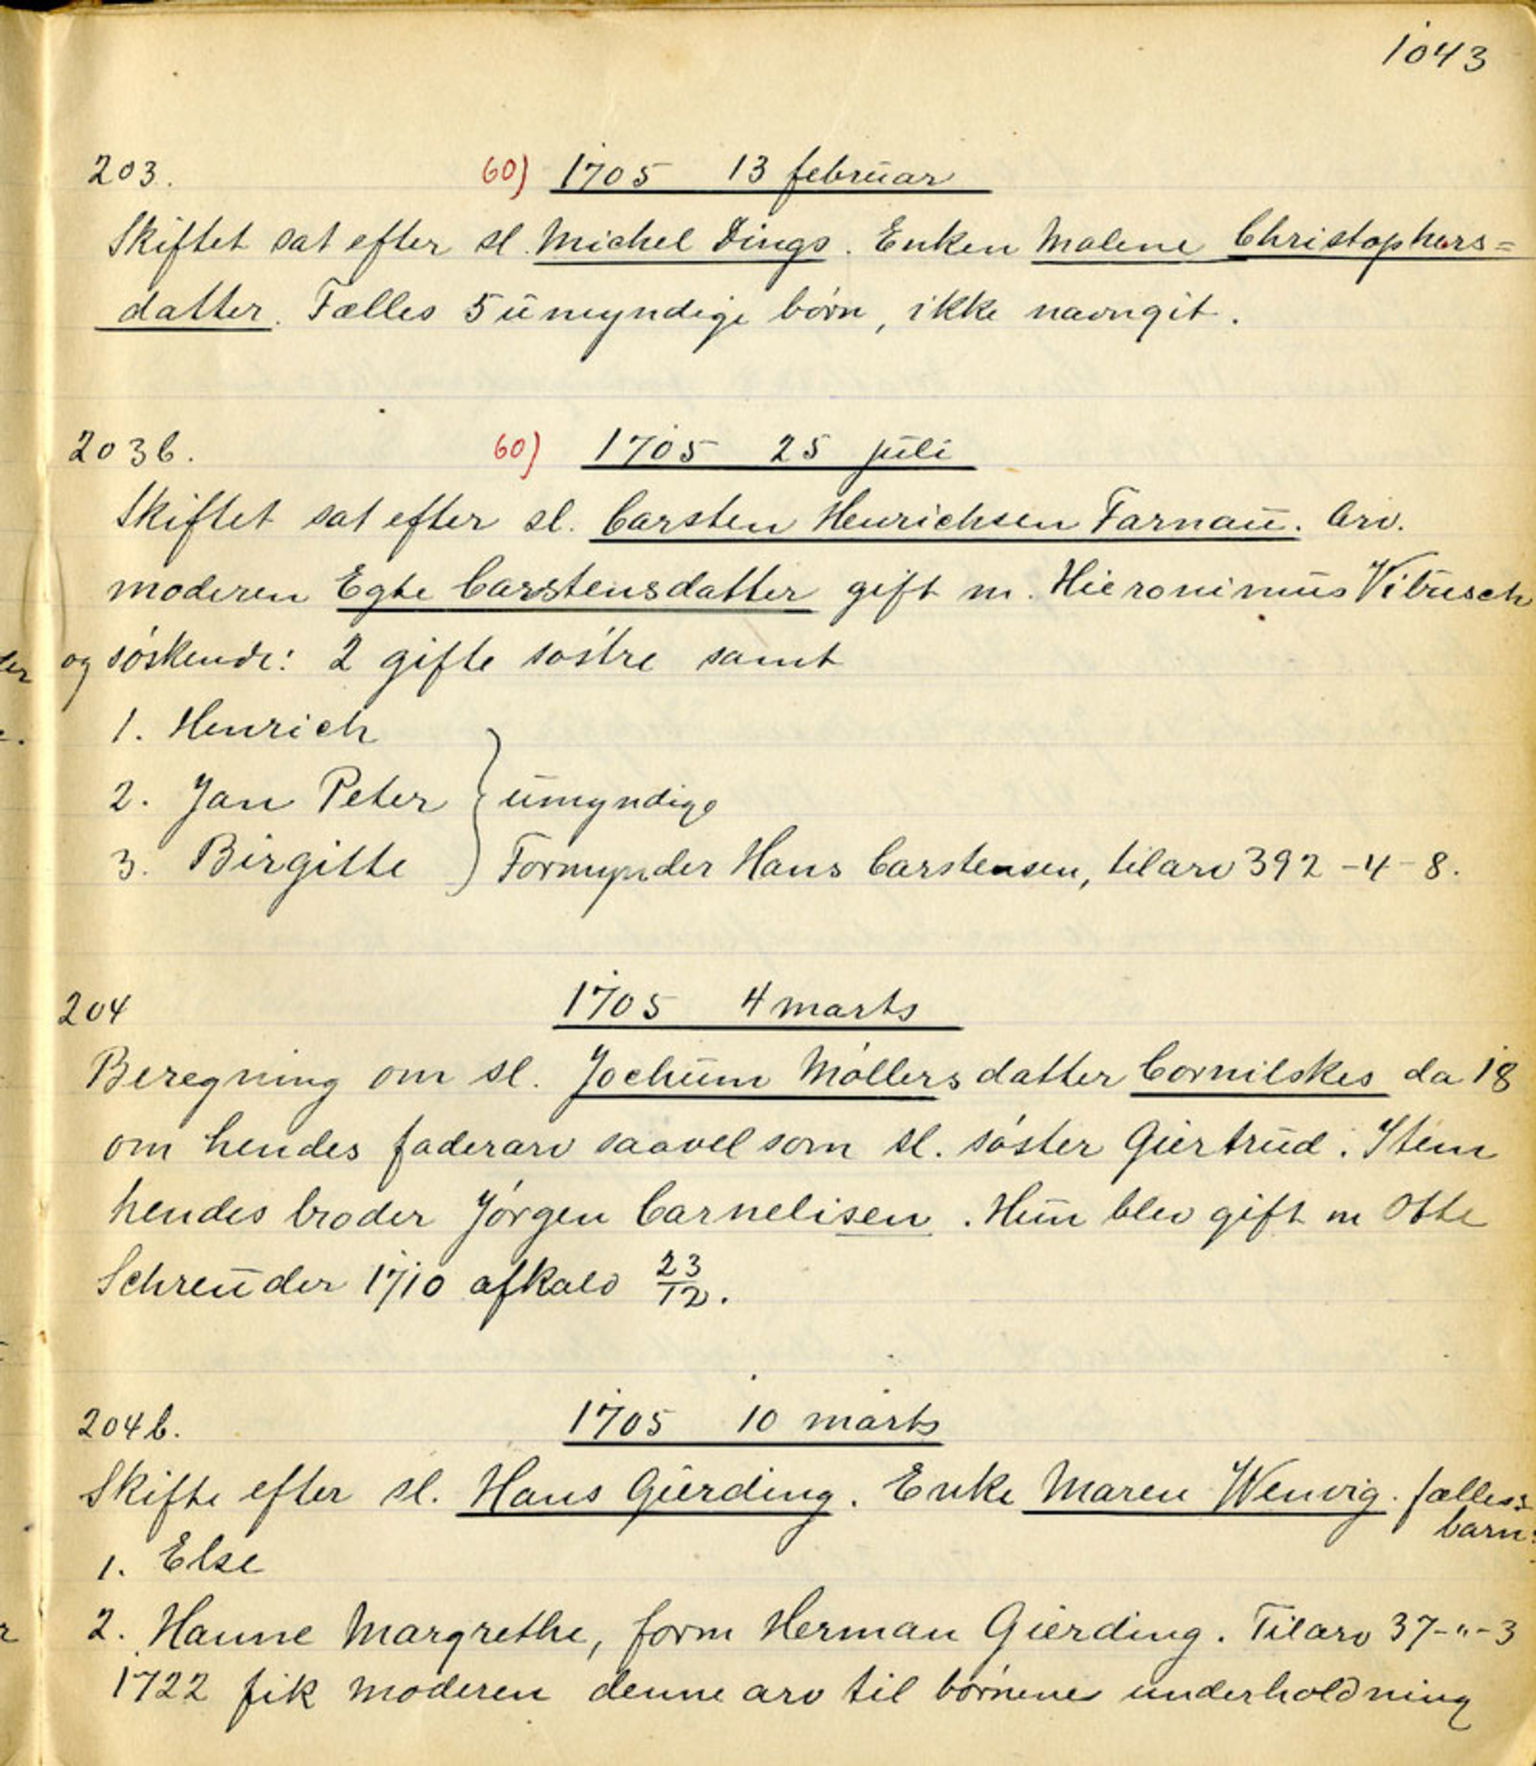 1043
203. 60) 1705 13 februar
Skiftet sat efter sl. Michel Dings. Enken Malene Christophers=
datter. Fælles 5 umyndige børn, ikke navngit.
203b. 60) 1705 25 juli
Skiftet sat efter sl. Carsten Henrichsen Farnau. Arv.
moderen Egte Carstensdatter gift m. Hieronimus Vitusch
og søskende: 2 gifte søstre samt
1. Henrich
2. Jan Peter } umyndige
3. Birgitte Formynder Hans Carstensen, tilarv 392-4-8.
204 1705 4 marts
Beregning om sl. Jochum Møllers datter Cornilskes da 18
om hendes faderarv saavel som sl. søster Giertrud. Item
hendes broder Jørgen Carnelisen. Hun blev gift m Otte
Schreuder 1710 afkald 23/12.
204b. 1705 10 marts
Skifte efter sl. Hans Gierding. Enke Maren Wenvig. fælles
barn:
1. Else
2. Hanne Margrethe, form Herman Gierding. Tilarv 37-"-3
1722 fik moderen denne arv til børnenes underholdning